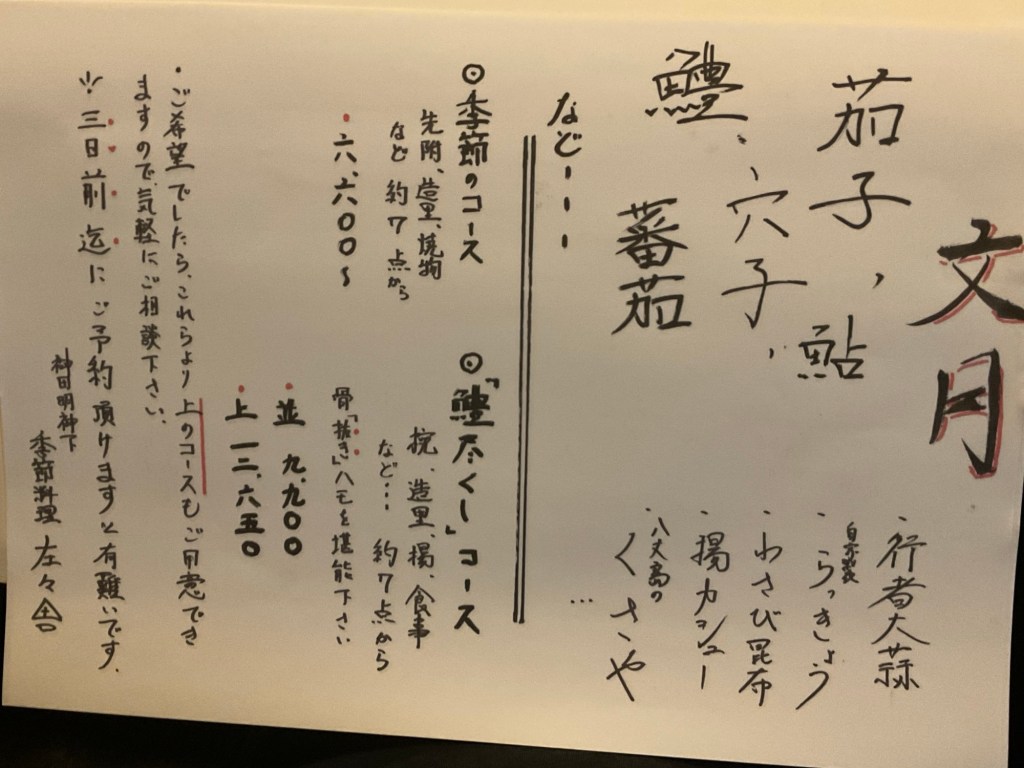 文月
茄子、鮎
鱧、穴子、
蕃茄
など・・・
・行者大蒜
・自家製
らっきょう
・わさび昆布
・揚カシュー
・八丈島の
くさや
…
◎季節のコース
先附、造里、焼物
など 約7点から
・六、六〇〇〜
◎「鱧尽くし」コース
椀、造里、揚、食事
など… 約7点から
骨「抜き」ハモを堪能下さい
・並 九、九〇〇
・上 一二、六五〇
・ご希望でしたら、これらより上のコースもご用意でき
ますので、気軽にご相談下さい。
※三日前迄にご予約頂けますと有難いです。
神田明神下
季節料理 左々